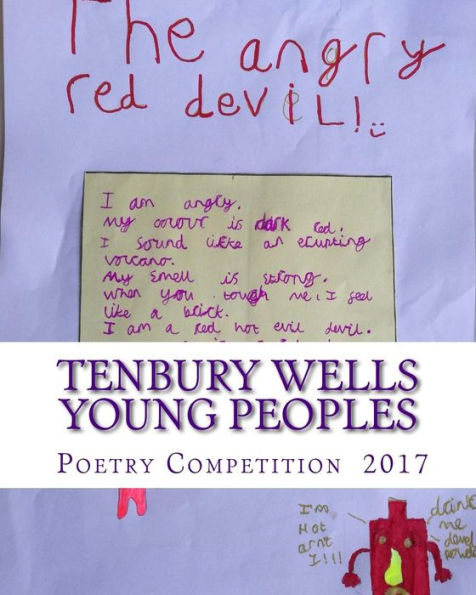 The angry
red devil!
I am angry.
My colour is dark red.
I sound likke an erupting
vorcano.
My smell is strong.
When you tough me, I feel
like a brick.
I am a red hot evil devil.
TENBURY WELLS
YOUNG PEOPLES
POETRY COMPETITION 2017
I'm
Hot
arn't
I!!!
drink
me
devel